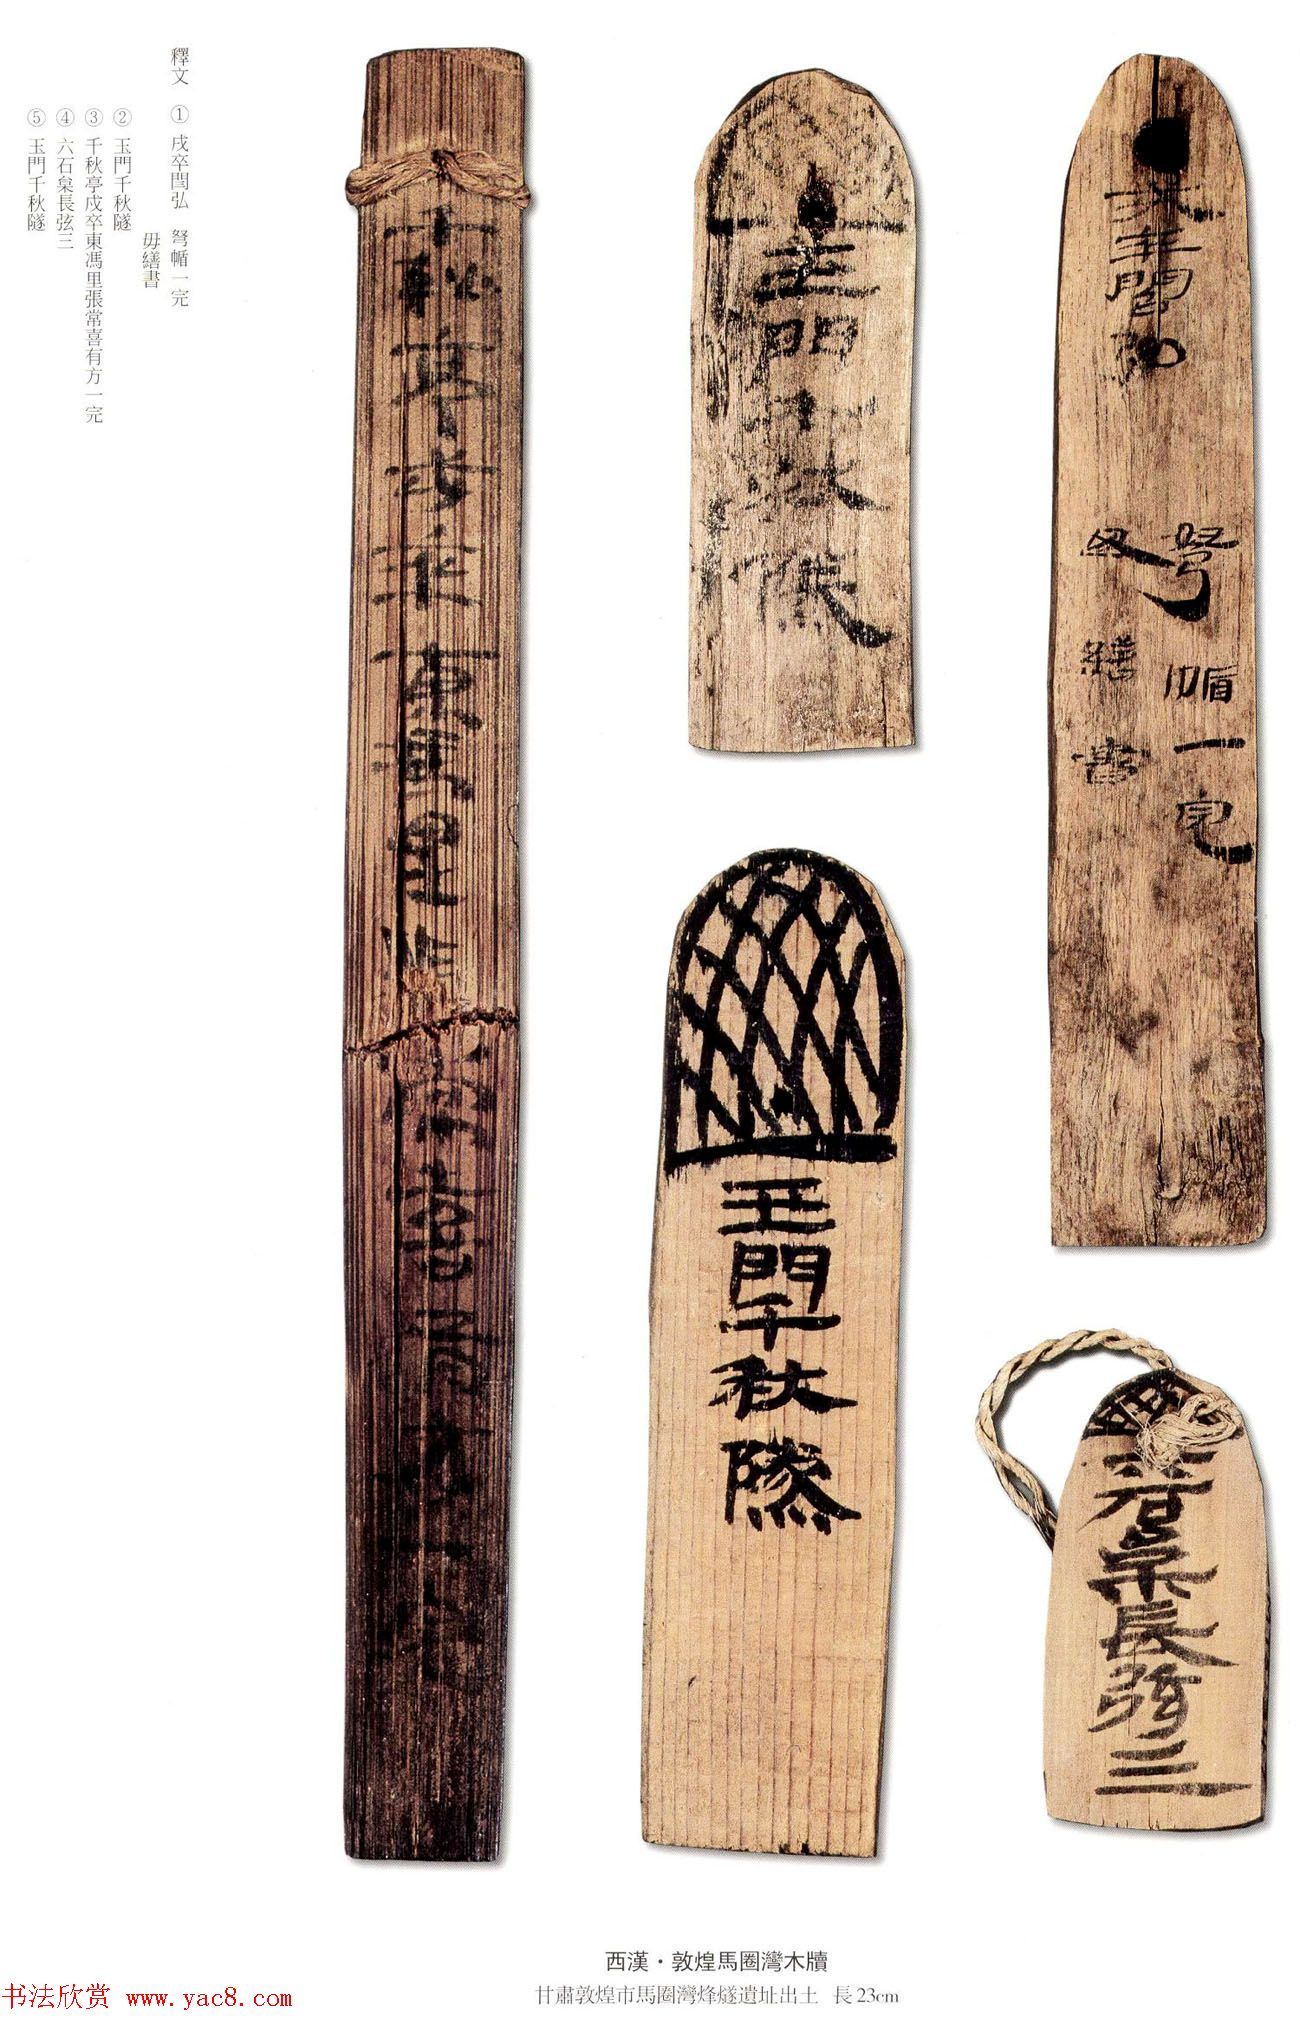 戍卒閆弘
弩幡一完
毋繕書
玉門千秋隧
千秋亭戍卒東馮里
六石枲長弦三
玉門千秋隧
釋文 ① 戌卒閆弘 弩幡一完
毋繕書
② 玉門千秋隧
③ 千秋亭戍卒東馮里張常喜有方一完
④ 六石枲長弦三
⑤ 玉門千秋隧
西漢・敦煌馬圈灣木牘
甘肅敦煌市馬圈灣烽燧遺址出土 長23cm
书法欣赏 www.yac8.com